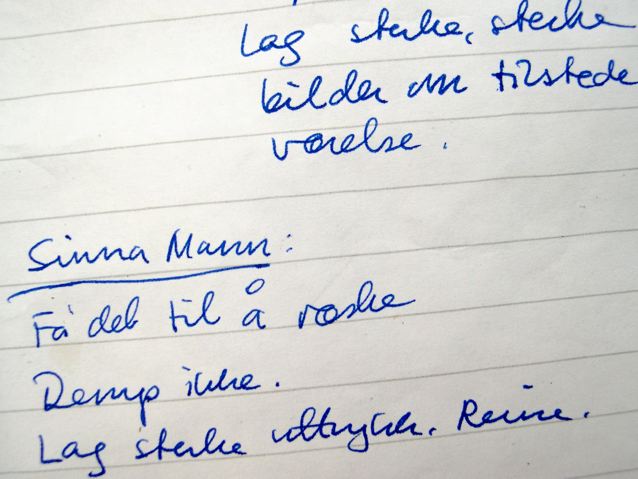 Lag sterke, sterke
bilder om tilstede
værelse.
Sinna Mann:
Få det til å raske
Demp ikke.
Lag sterke uttrykk. Reine.